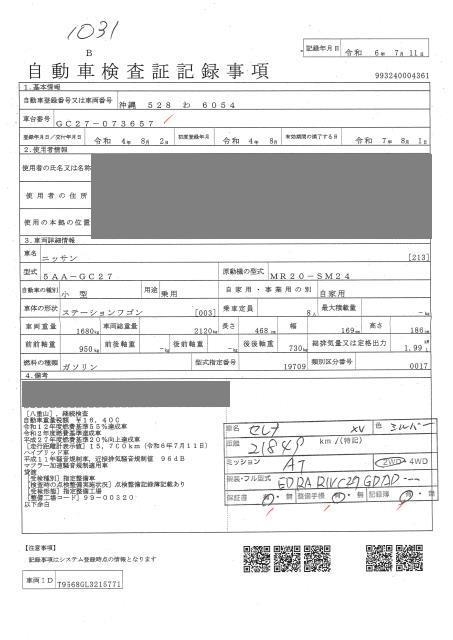 1031
B
記録年月日 令和 6年 7月 11日
自動車検査証記録事項
993240004361
1.基本情報
自動車登録番号又は車両番号 沖縄 528 わ 6054
車台番号 GC27-073657
登録年月日/交付年月日 令和 4年 8月 2日 初度登録年月 令和 4年 8月 有効期間の満了する日 令和 7年 8月 1日
2.使用者情報
使用者の氏名又は名称
使用者の住所
使用の本拠の位置
3.車両詳細情報
車名 ニッサン [213]
型式 5AA-GC27 原動機の型式 MR20-SM24
自動車の種別 小型 用途 乗用 自家用・事業用の別 自家用
車体の形状 ステーションワゴン [003] 乗車定員 8人 最大積載量 -kg
車両重量 1680kg 車両総重量 2120kg 長さ 468cm 幅 169cm 高さ 186cm
前前軸重 950kg 前後軸重 -kg 後前軸重 -kg 後後軸重 730kg 総排気量又は定格出力 1.99L
燃料の種類 ガソリン 型式指定番号 19709 類別区分番号 0017
4.備考
[八重山],継続検査
自動車重量税額 ¥16,400
令和12年度燃費基準55%達成車
令和2年度燃費基準達成車
平成27年度燃費基準20%向上達成車
[走行距離計表示値]15,700km(令和6年7月11日)
ハイブリッド車
平成11年騒音規制車,近接排気騒音規制値 96dB
マフラー加速騒音規制適用車
[受検種別]指定整備車
[検査時の点検整備実施状況]点検整備記録簿記載あり
[受検形態]指定整備工場
[整備工場コード]99-00320
以下余白
車名 セレナ XV 色 シルバー
距離 21849 km/(特記)
ミッション AT 2WD・4WD
類装・フル型式
保証書 有・無 整備手帳 有・無 記録簿 有・無
【注意事項】
記録事項はシステム登録時点の情報となります
車両ID T9568GL3215771